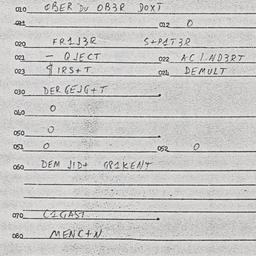 010 OBER DU OB3R DOXT
021 012 0
020 FR1J3R S+P1T3R
021 - OJECT 022 AC I ND3RT
023 $IRS+T 024 DEMULT
030 DERGEJG+T
040 0
050 0
051 0 052 0
060 DEM JID+ GR1KENT
070 C1GAST
080 MENC+N